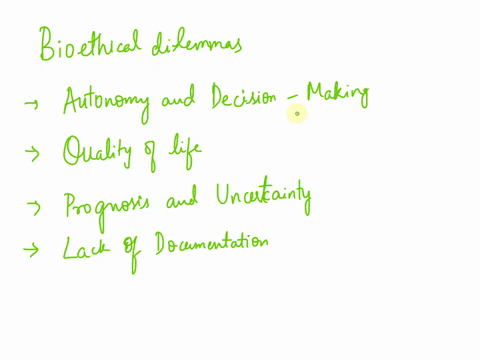 Bioethical dilemmas
→ Autonomy and Decision - Making
→ Quality of life
→ Prognosis and Uncertainty
→ Lack of Documentation